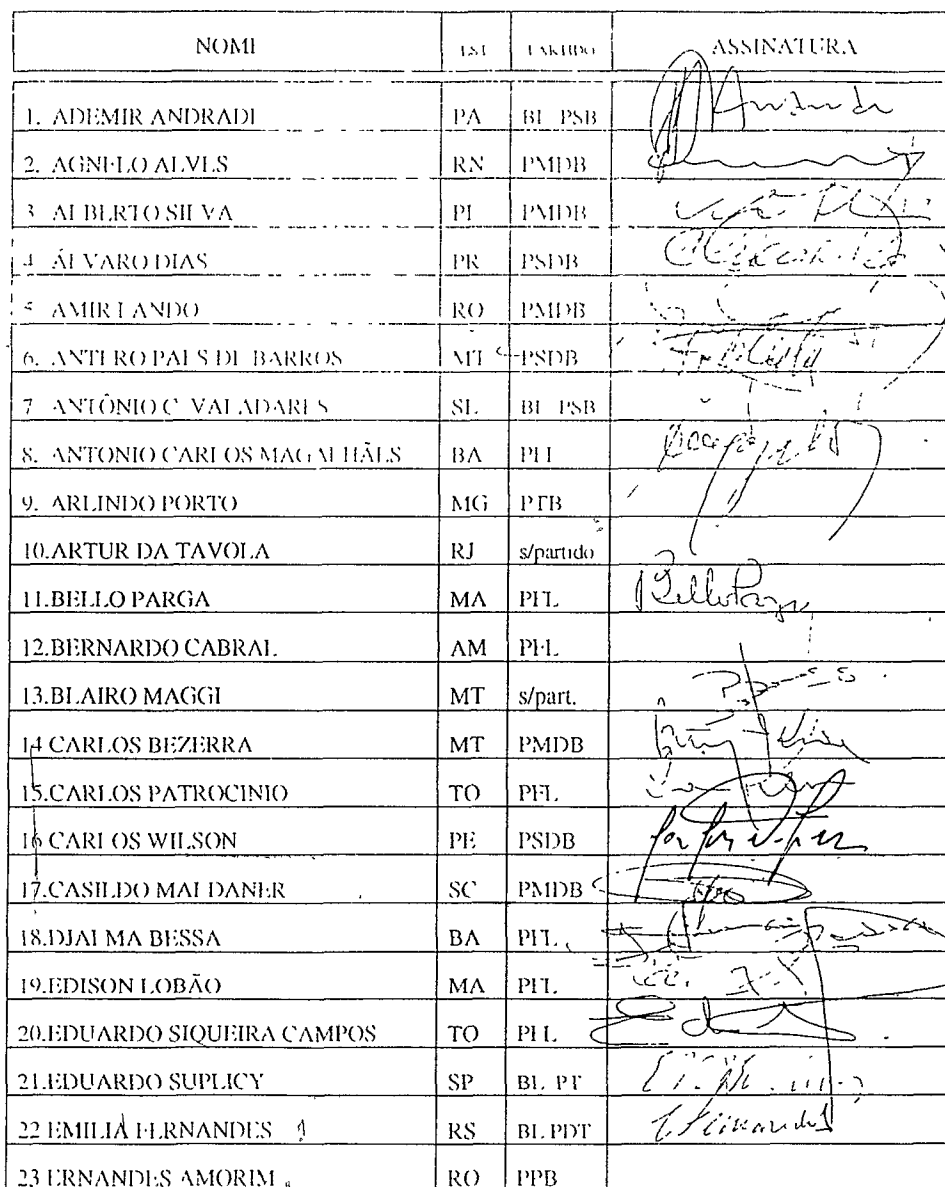 NOME EST PARTIDO ASSINATURA
1. ADEMIR ANDRADE PA BL PSB Andrade
2. AGNELO ALVES RN PMDB
3 ALBERTO SILVA PI PMDB
4 ÁLVARO DIAS PR PSDB
5 AMIR LANDO RO PMDB
6. ANTERO PAES DE BARROS MT PSDB
7 ANTÔNIO C VALADARES SE BL PSB
8. ANTONIO CARLOS MAGALHÃES BA PFL
9. ARLINDO PORTO MG PTB
10.ARTUR DA TAVOLA RJ s/partido
11.BELLO PARGA MA PFL Bello Parga
12.BERNARDO CABRAL AM PFL
13.BLAIRO MAGGI MT s/part.
14 CARLOS BEZERRA MT PMDB
15.CARLOS PATROCINIO TO PFL
16 CARLOS WILSON PE PSDB
17.CASILDO MALDANER SC PMDB
18.DJALMA BESSA BA PFL
19.EDISON LOBÃO MA PFL
20.EDUARDO SIQUEIRA CAMPOS TO PFL
21.EDUARDO SUPLICY SP BL PT
22 EMILIA FERNANDES RS BL PDT
23 ERNANDES AMORIM RO PPB